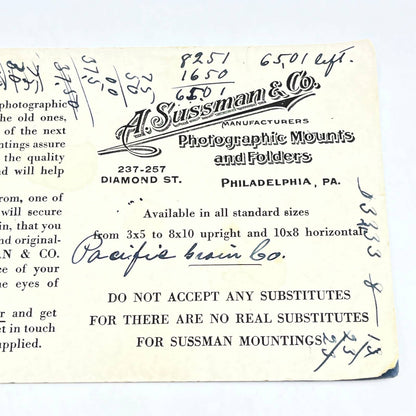 8251
1650
6601
6501 left.
75
50
00
375
37.50
photographic
the old ones,
of the next
ntings assure
the quality
nd will help
rom, one of
will secure
in, that you
nd original-
AN & CO.
ce of your
he eyes of
r and get
et in touch
pplied.
A. Sussman & Co.
MANUFACTURERS
Photographic Mounts
and Folders
237-257
DIAMOND ST.
PHILADELPHIA, PA.
Available in all standard sizes
from 3x5 to 8x10 upright and 10x8 horizontal
Pacific Grain Co.
DO NOT ACCEPT ANY SUBSTITUTES
FOR THERE ARE NO REAL SUBSTITUTES
FOR SUSSMAN MOUNTINGS